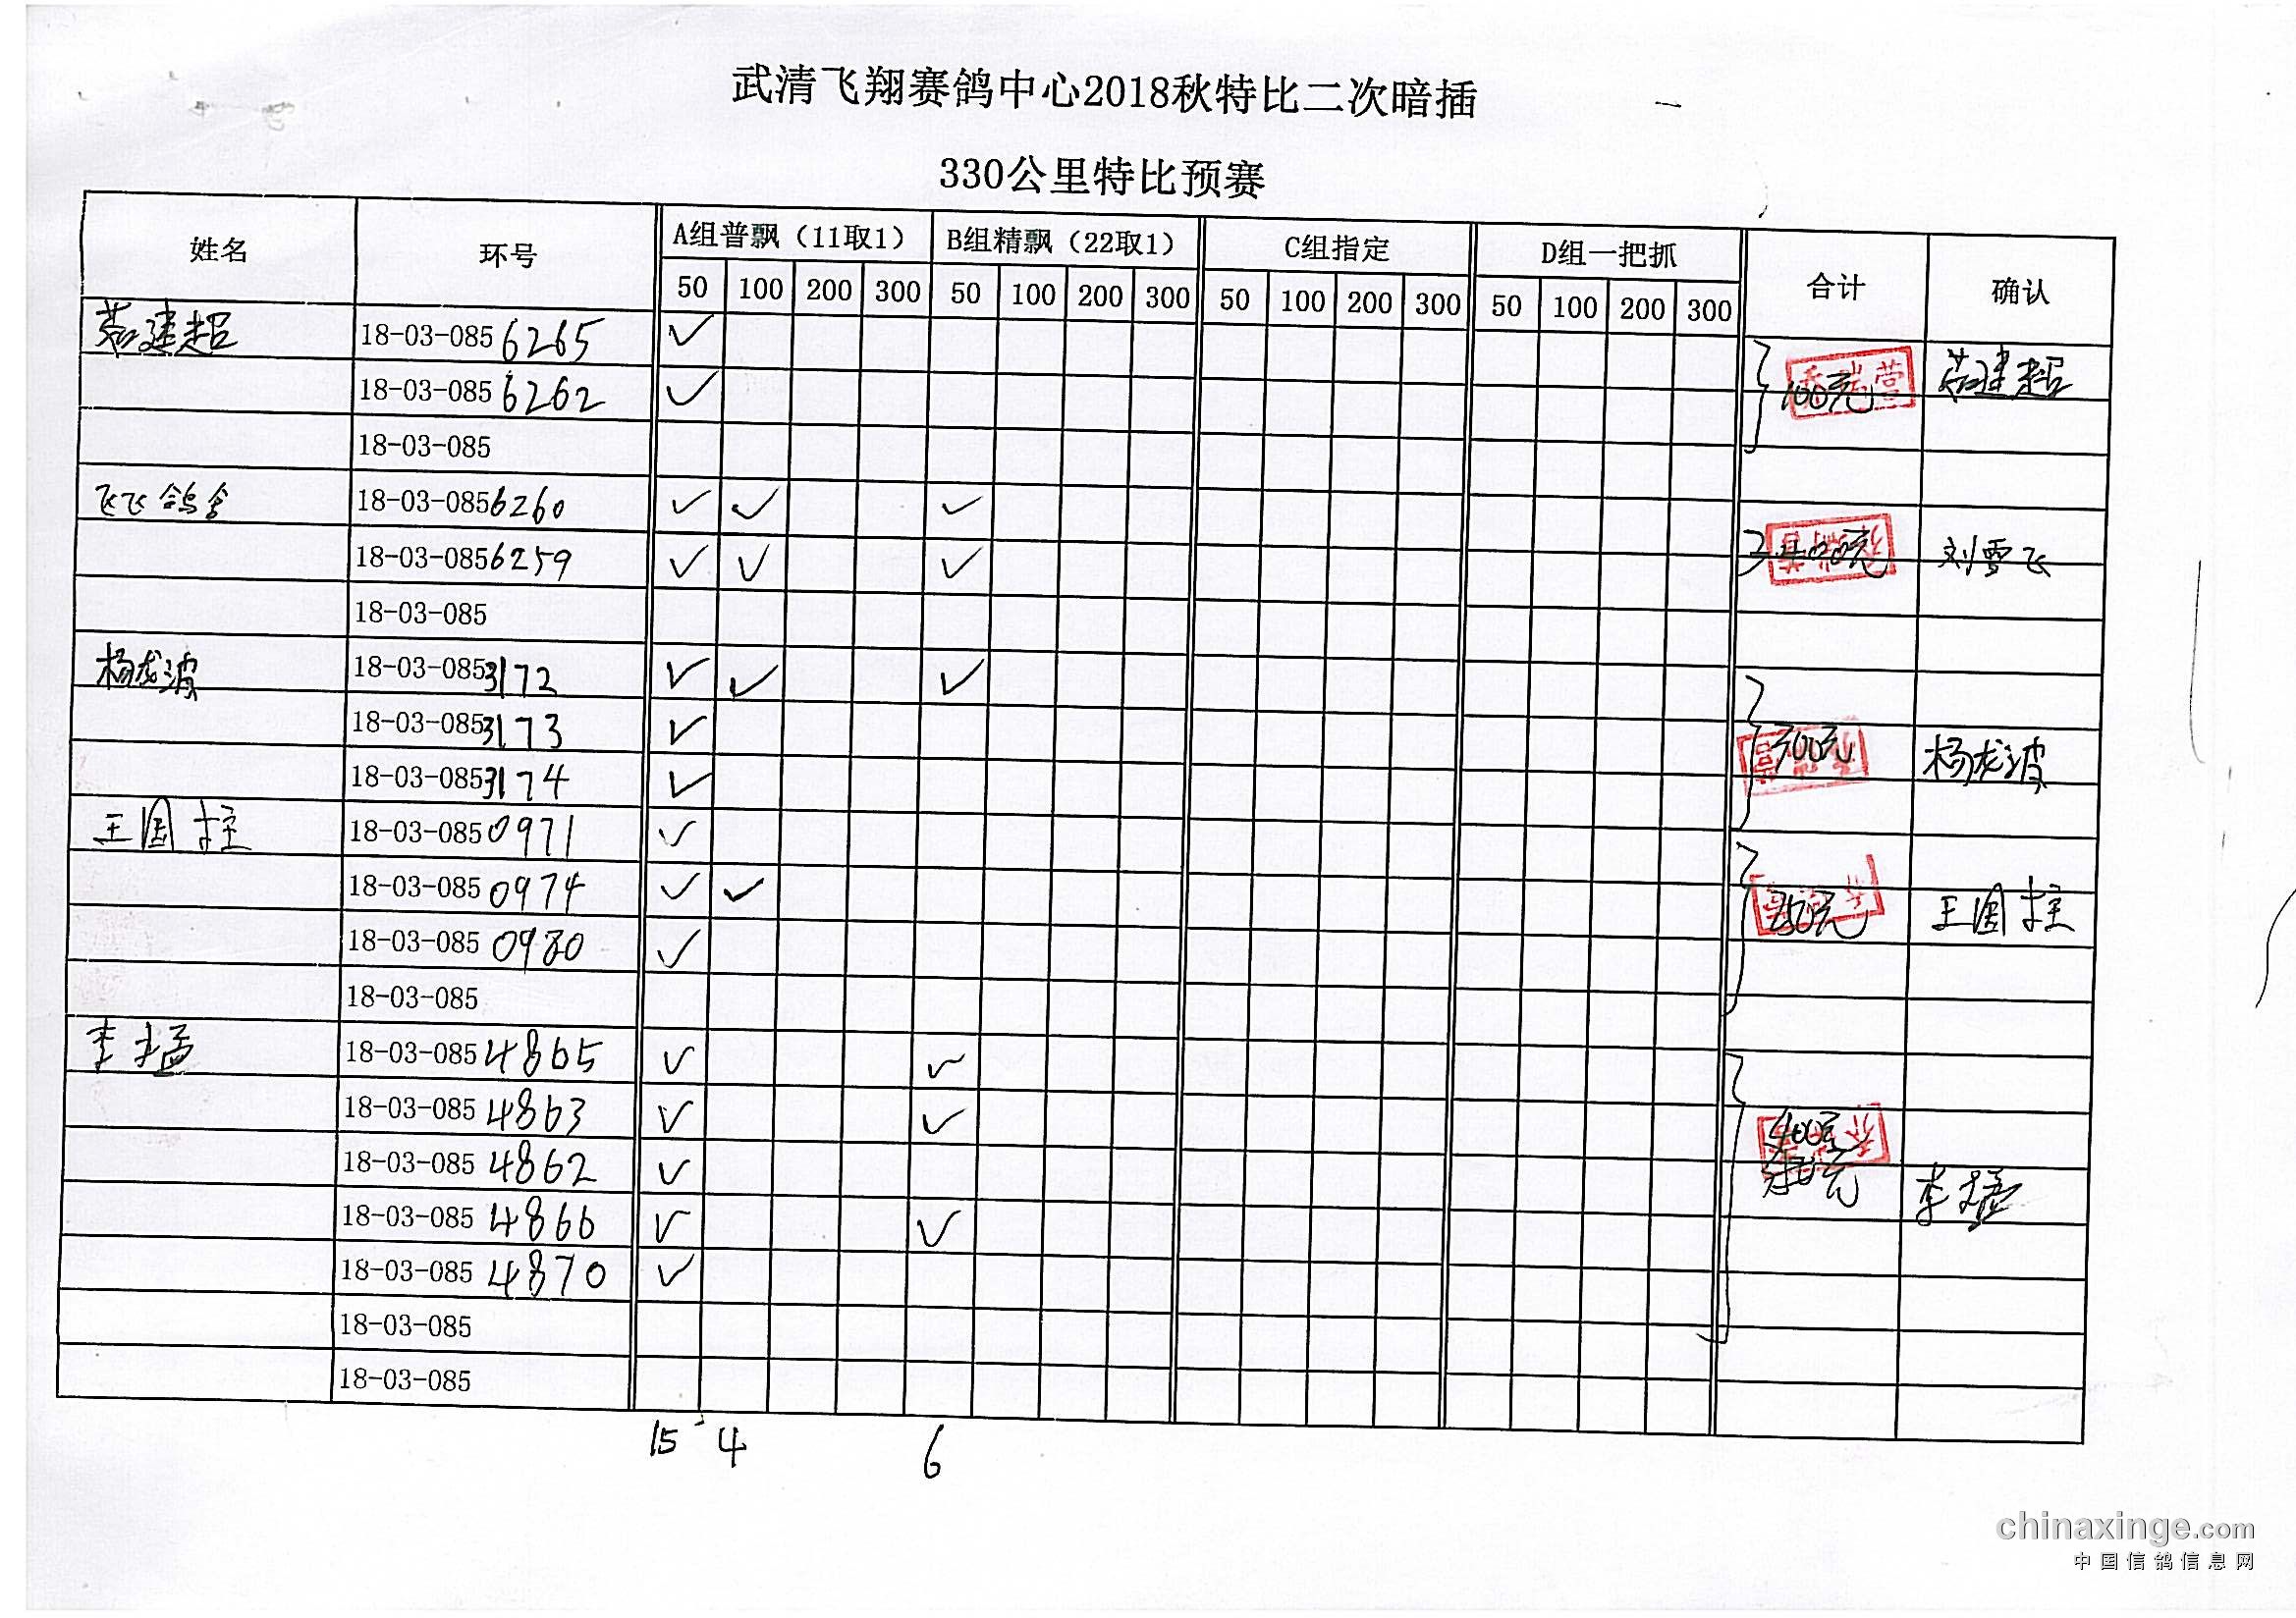 武清飞翔赛鸽中心2018秋特比二次暗插
330公里特比预赛
姓名 环号 A组普飘（11取1） B组精飘（22取1） C组指定 D组一把抓 合计 确认
50 100 200 300 50 100 200 300 50 100 200 300 50 100 200 300
建超 18-03-085 6265 ✓
18-03-085 6262 ✓ 100元 建超
18-03-085
飞飞鸽舍 18-03-085 6260 ✓ ✓ ✓
18-03-085 6259 ✓ ✓ ✓ 400元 刘雪飞
18-03-085
杨龙波 18-03-085 3172 ✓ ✓ ✓
18-03-085 3173 ✓ 300元 杨龙波
18-03-085 3174 ✓
王国柱 18-03-085 0971 ✓
18-03-085 0974 ✓ ✓ 250元 王国柱
18-03-085 0980 ✓
18-03-085
李猛 18-03-085 4865 ✓ ✓
18-03-085 4863 ✓ ✓ 400元
18-03-085 4862 ✓ 李猛
18-03-085 4866 ✓ ✓
18-03-085 4870 ✓
18-03-085
18-03-085
15 4 6
chinaxinge.com
中国信鸽信息网